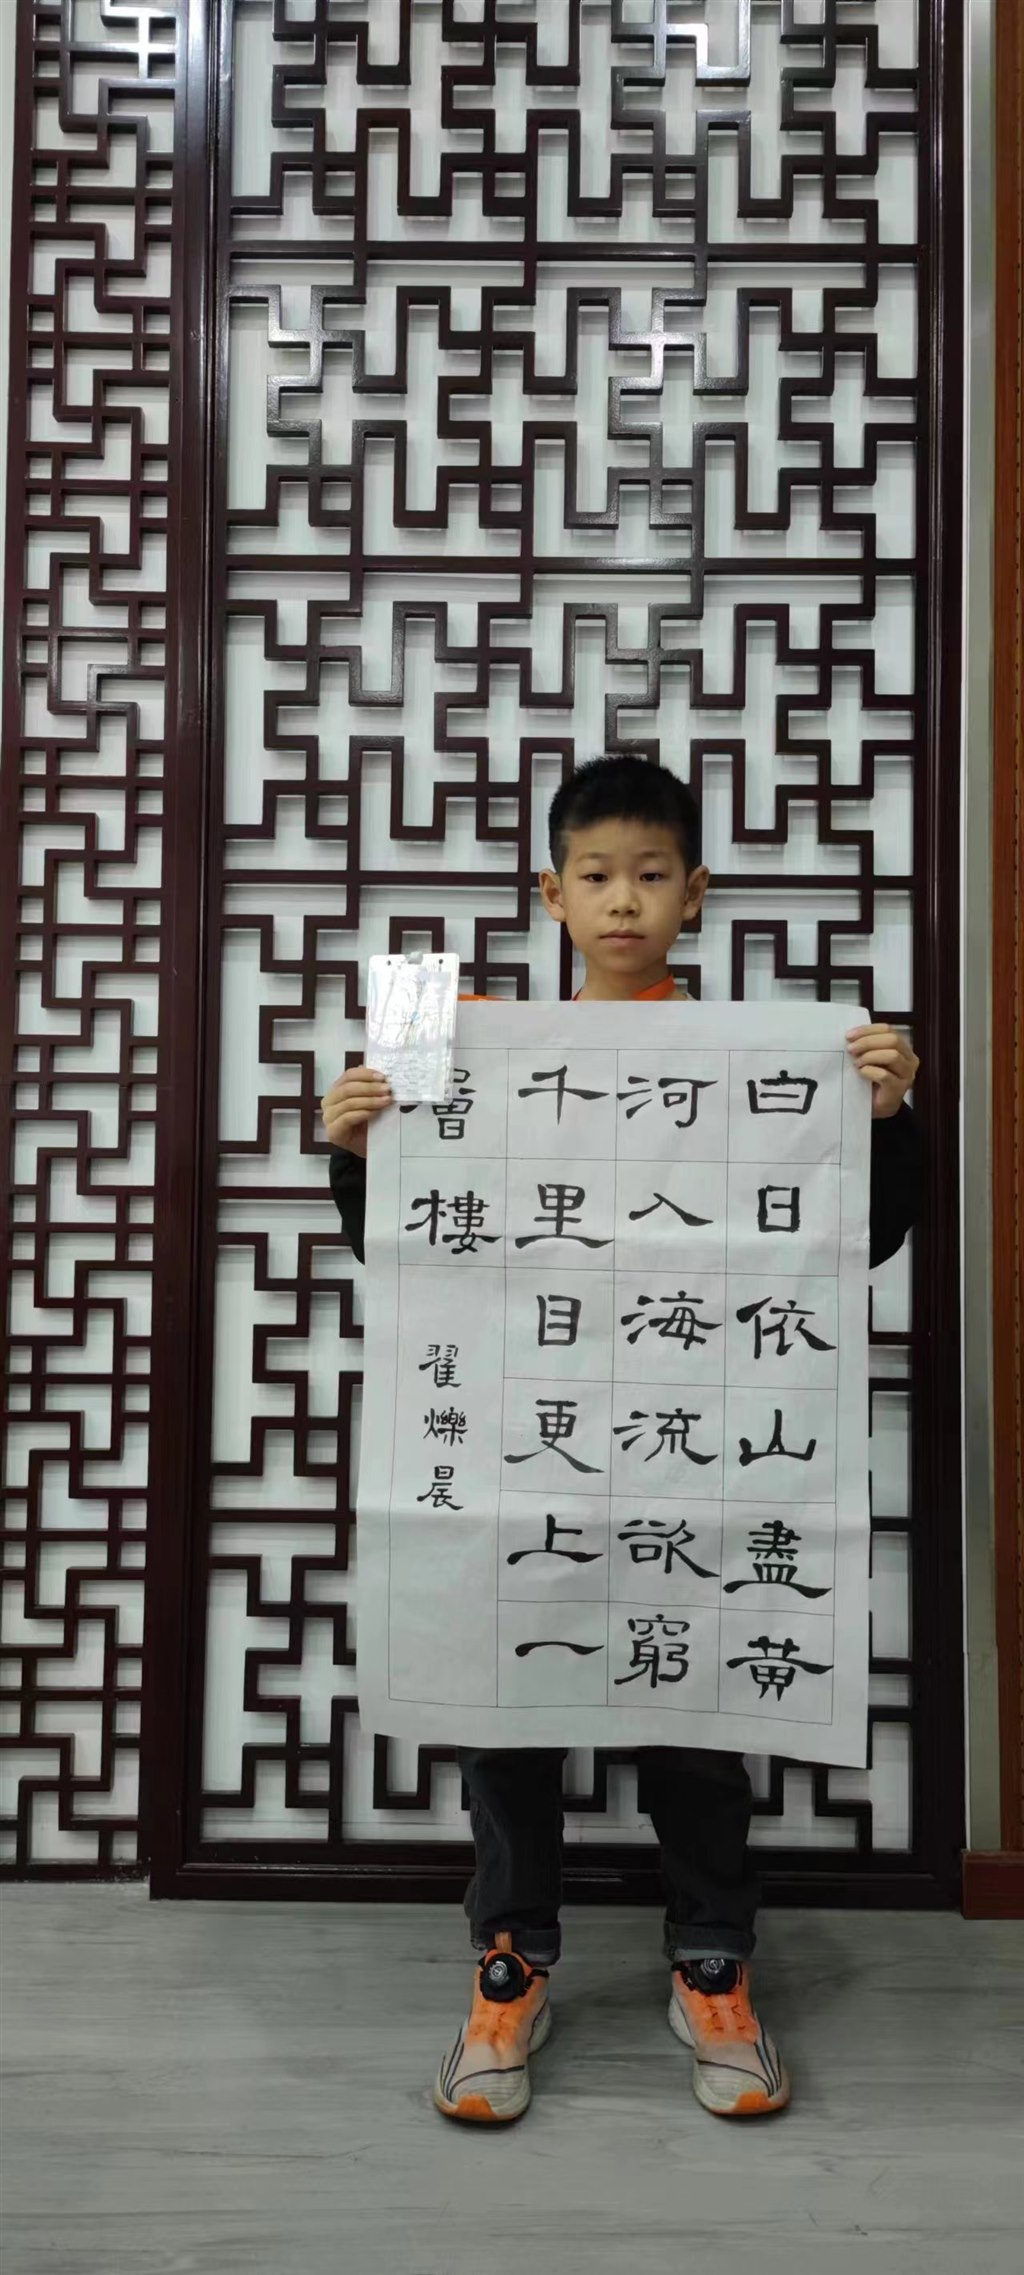 白日依山盡黄
河入海流欲窮
千里目更上一
層樓
翟爍晨